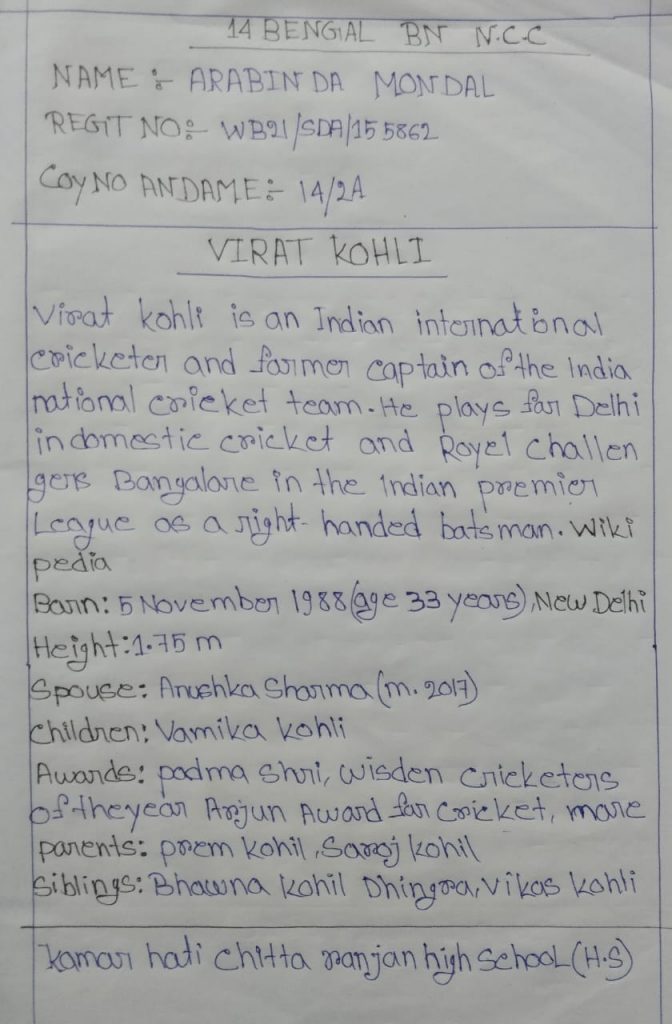 14 BENGAL BN N.C.C
NAME :- ARABINDA MONDAL
REGIT NO:- WB21/SDA/155862
COY NO ANDAME:- 14/2A
VIRAT KOHLI
Virat kohli is an Indian international
cricketer and former captain of the India
national cricket team. He plays for Delhi
in domestic cricket and Royel challen
gers Bangalore in the Indian premier
League as a right-handed batsman. Wiki
pedia
Born: 5 November 1988 (age 33 years), New Delhi
Height: 1.75 m
Spouse: Anushka Sharma (m. 2017)
children: Vamika kohli
Awards: padma shri, wisden cricketers
of the year Arjun Award for cricket, more
parents: prem kohil, Saroj kohil
Siblings: Bhawna kohil Dhingra, Vikas kohli
kamar hati chitta ranjan high SCHOOL (H.S)